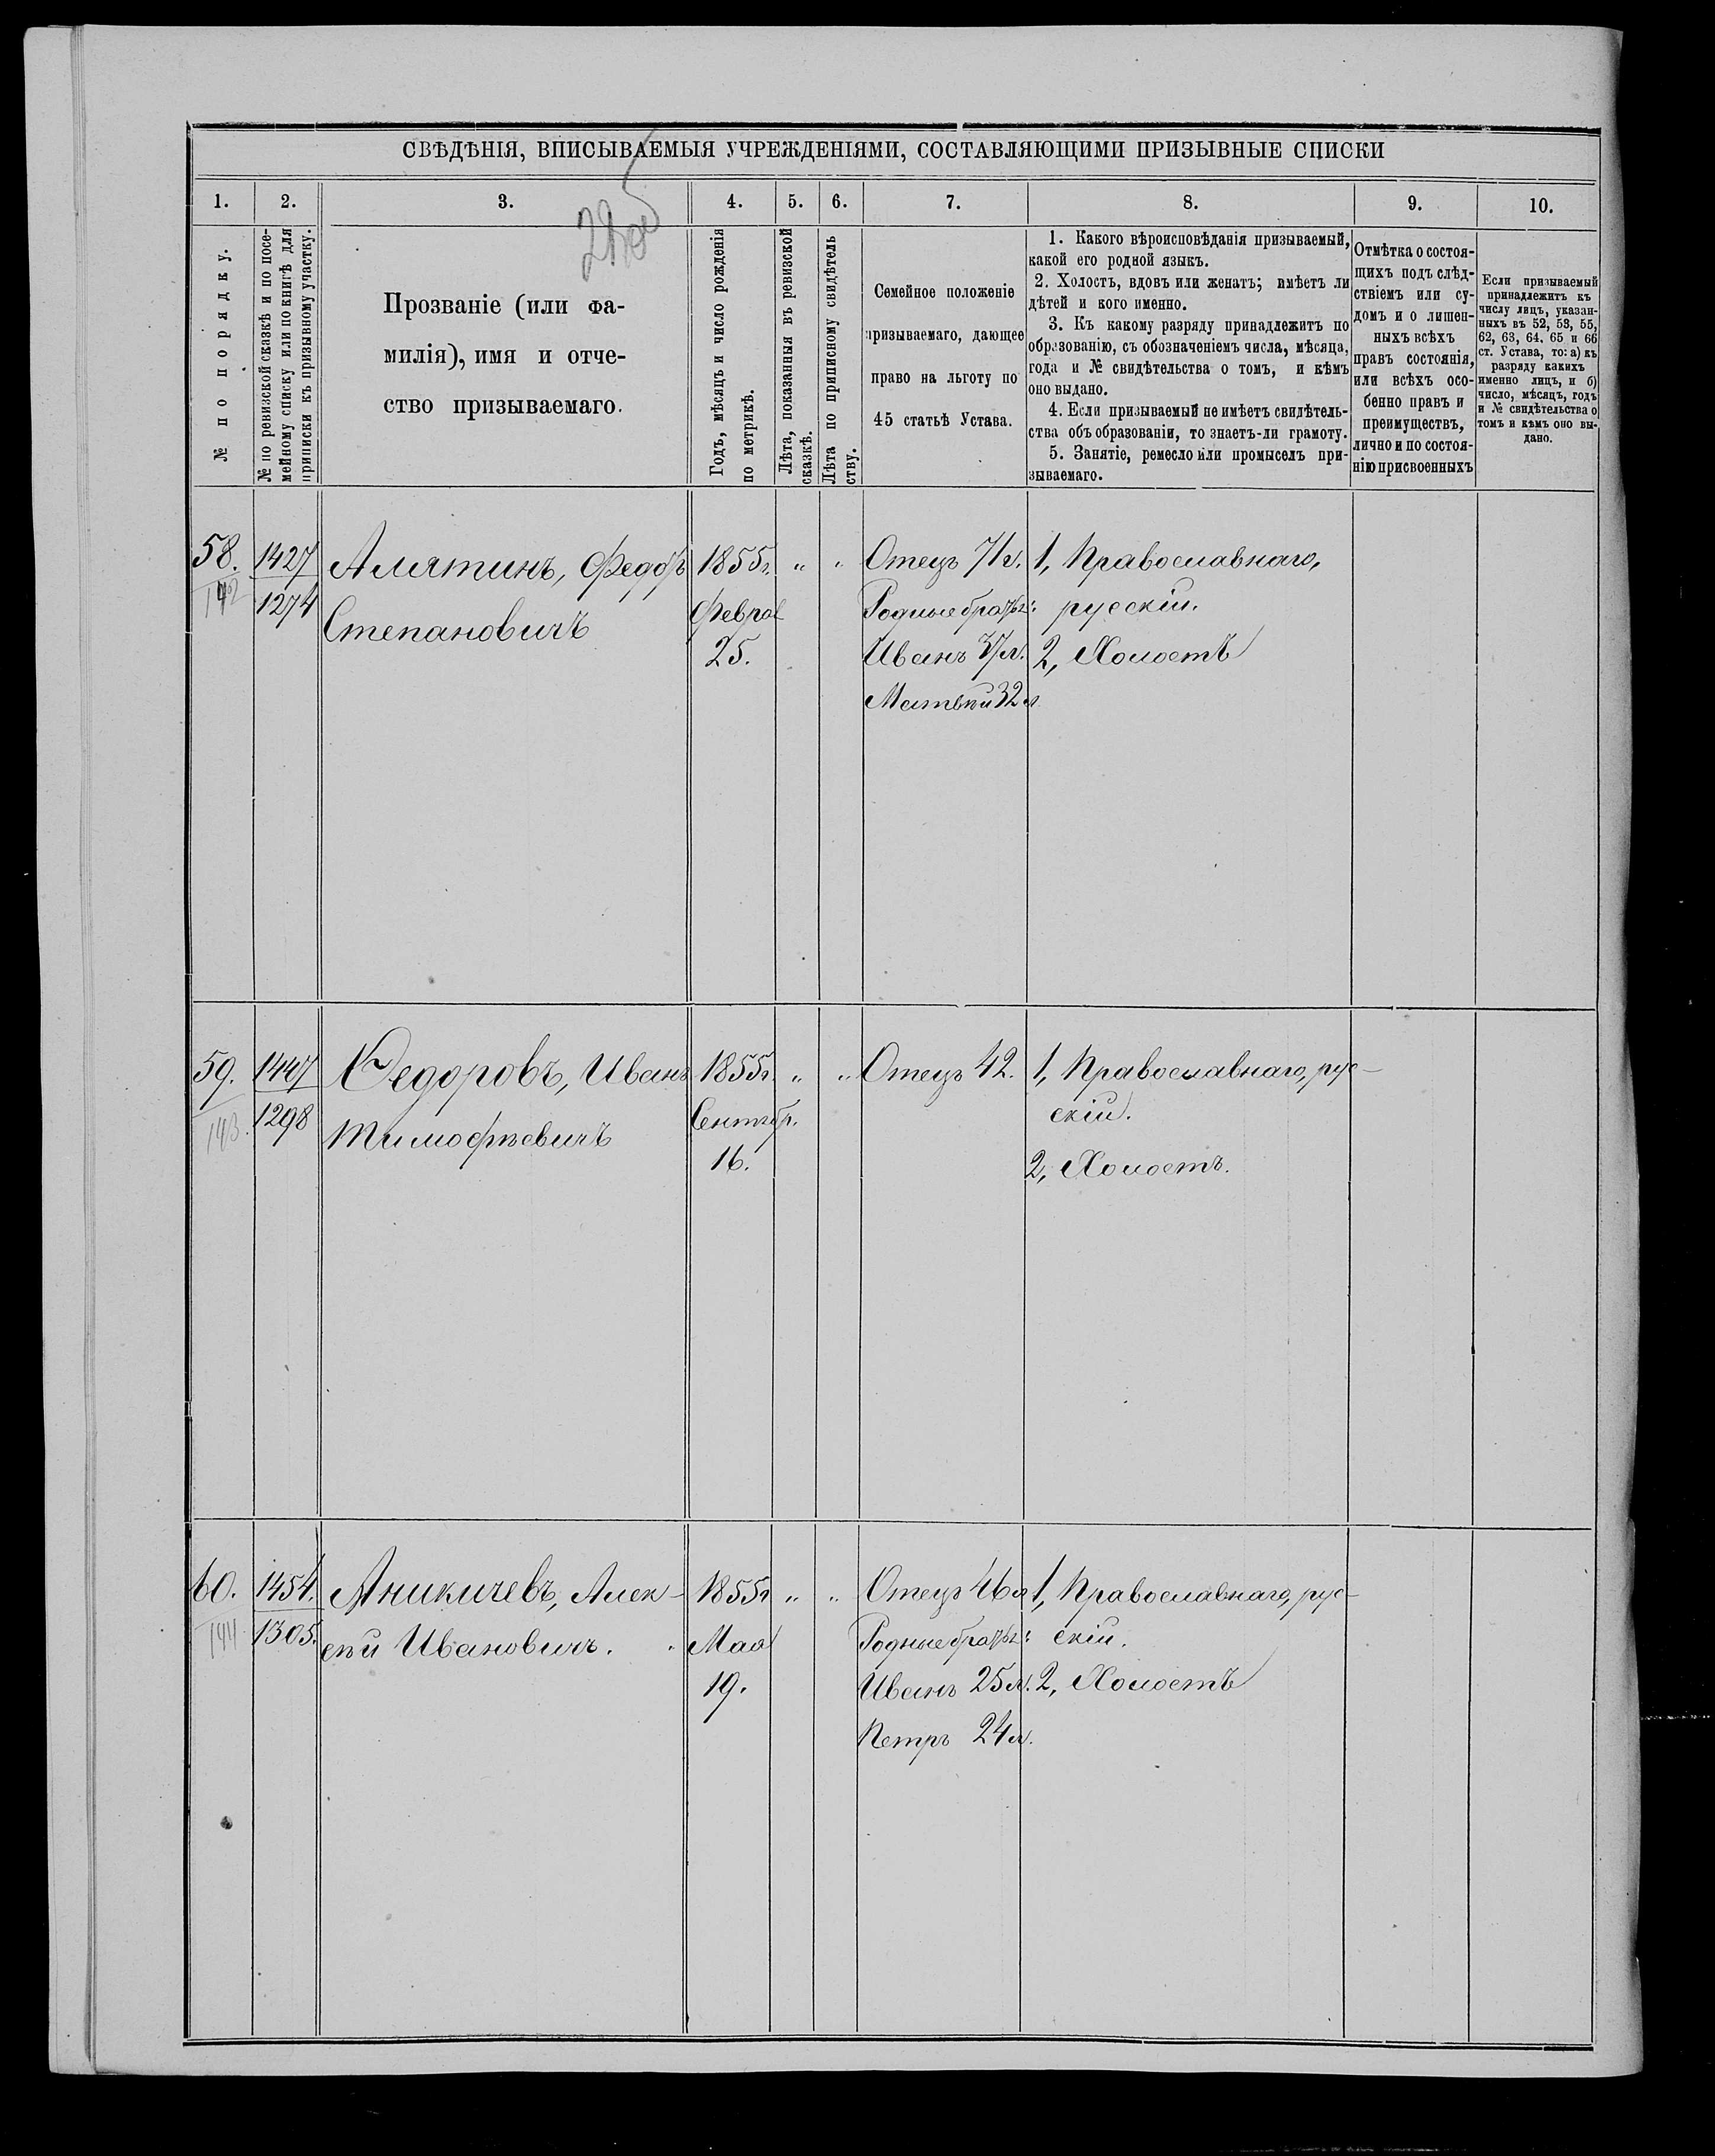 СВѢДѢНІЯ, ВПИСЫВАЕМЫЯ УЧРЕЖДЕНІЯМИ, СОСТАВЛЯЮЩИМИ ПРИЗЫВНЫЕ СПИСКИ
1. 2. 3. 4. 5. 6. 7. 8. 9. 10.
№ по порядку.
№ по ревизской сказкѣ и по посе-
мейному списку или по книгѣ для
приписки къ призывному участку.
Прозваніе (или фа-
милія), имя и отче-
ство призываемаго.
Годъ, мѣсяцъ и число рожденія
по метрикѣ.
Лѣта, показанныя въ ревизской
сказкѣ.
Лѣта по приписному свидѣтель
ству.
Семейное положеніе
призываемаго, дающее
право на льготу по
45 статьѣ Устава.
1. Какого вѣроисповѣданія призываемый,
какой его родной языкъ.
2. Холостъ, вдовъ или женатъ; имѣетъ ли
дѣтей и кого именно.
3. Къ какому разряду принадлежитъ по
образованію, съ обозначеніемъ числа, мѣсяца,
года и № свидѣтельства о томъ, и кѣмъ
оно выдано.
4. Если призываемый не имѣетъ свидѣтель-
ства объ образованіи, то знаетъ-ли грамоту.
5. Занятіе, ремесло или промыселъ при-
зываемаго.
Отмѣтка о состоя-
щихъ подъ слѣд-
ствіемъ или су-
домъ и о лишен-
ныхъ всѣхъ
правъ состоянія,
или всѣхъ осо-
бенно правъ и
преимуществъ,
лично и по состоя-
нію присвоенныхъ
Если призываемый
принадлежитъ къ
числу лицъ, указан-
ныхъ въ 52, 53, 55,
62, 63, 64, 65 и 66
ст. Устава, то: а) къ
разряду какихъ
именно лицъ, и б)
число, мѣсяцъ, годъ
и № свидѣтельства о
томъ и кѣмъ оно вы-
дано.
58. 1427 Алятинъ, Федоръ 1855г. " " Отецъ 71г. 1, Православнаго,
142 1274 Степановичъ Феврал Родные братья: русскій.
25. Иванъ 37л. 2, Холостъ
Матвѣй 32л
59. 1447 Федоровъ, Иванъ 1855г. " " Отецъ 42. 1, Православнаго, рус-
143. 1298 Тимофѣевичъ Сентябр. скій.
16. 2, Холостъ.
60. 1454. Аникичевъ, Алек- 1855г " " Отецъ 46л 1, Православнаго, рус-
144 1305. сѣй Ивановичъ. Мая Родные братья: скій.
19. Иванъ 25л. 2, Холостъ
Петръ 24л.